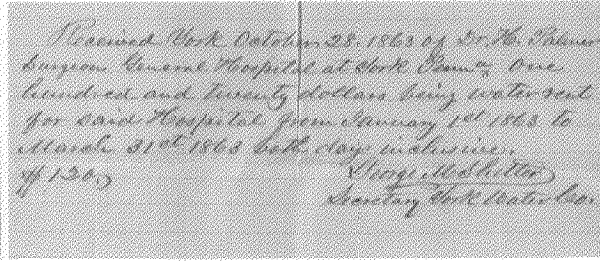 Received York October 28. 1863 of Dr. H. Palmer
Surgeon General Hospital at York Penna. One
hundred and twenty dollars being water rent
for said Hospital from January 1st 1863 to
March 31st 1863 both days inclusive.
$120.
George M Shetter
Secretary York Water Co.